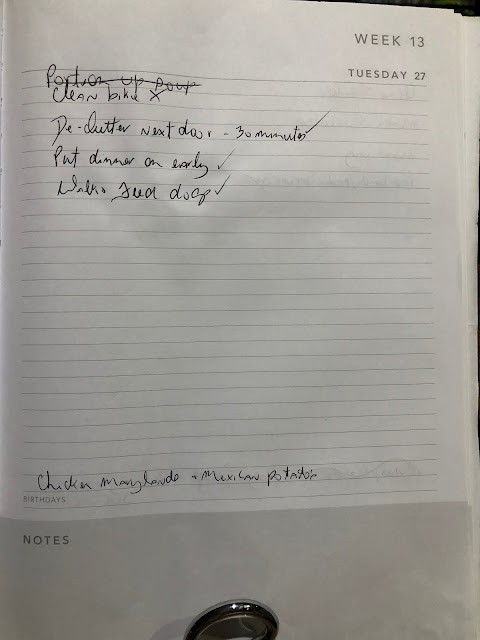 WEEK 13
TUESDAY 27
Portion up Soup
Clean bike X
De-clutter next door - 30 minutes ✓
Put dinner on early ✓
Walk + Feed dogs ✓
Chicken Marylands + Mexican potatoes
BIRTHDAYS
NOTES